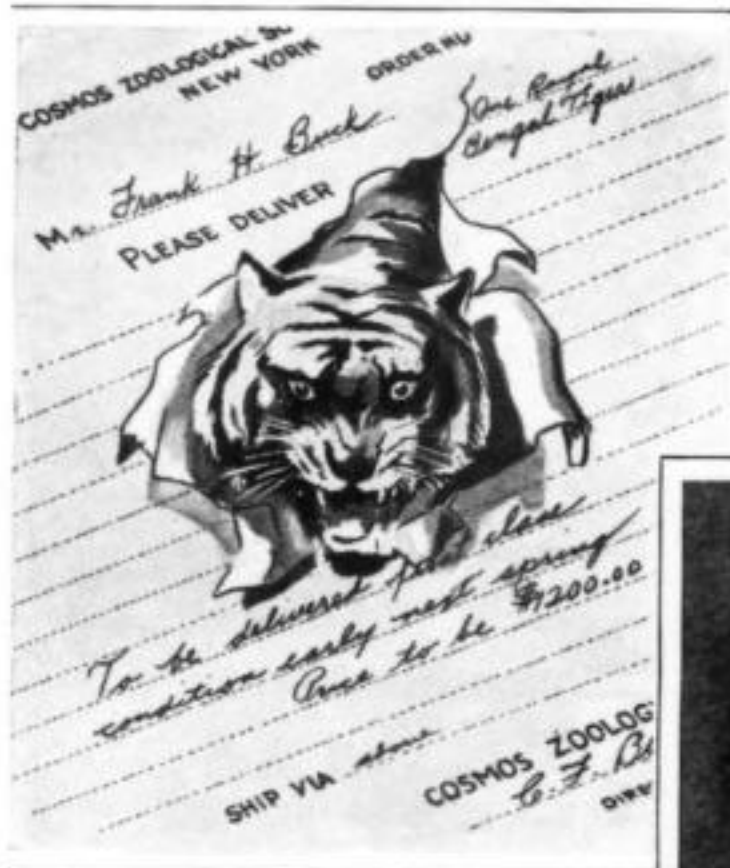 COSMOS ZOOLOGICAL
NEW YORK
ORDER
Mr. Frank H. Buck
PLEASE DELIVER
One Royal
Bengal Tiger
To be delivered first class
condition early next spring
Price to be $7200.00
SHIP VIA above
COSMOS ZOOLOG
C. F.
DIR